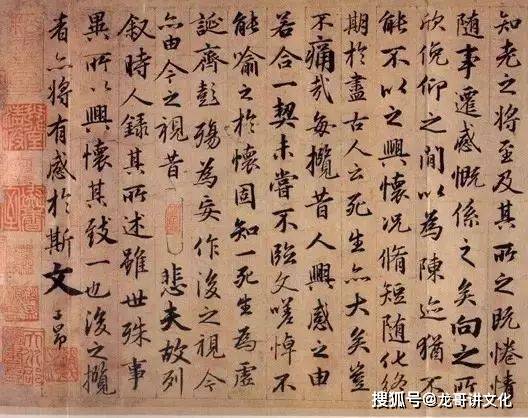 知老之將至及其所之既惓情
隨事遷感慨係之矣向之所
欣俛仰之間以為陳迹猶不
能不以之興懷況脩短隨化終
期於盡古人云死生亦大矣豈
不痛哉每攬昔人興感之由
若合一契未嘗不臨文嗟悼不
能喻之於懷固知一死生為虛
誕齊彭殤為妄作後之視今
亦由今之視昔 悲夫故列
叙時人錄其所述雖世殊事
異所以興懷其致一也後之攬
者亦將有感於斯文 子昂
搜狐号@龙哥讲文化